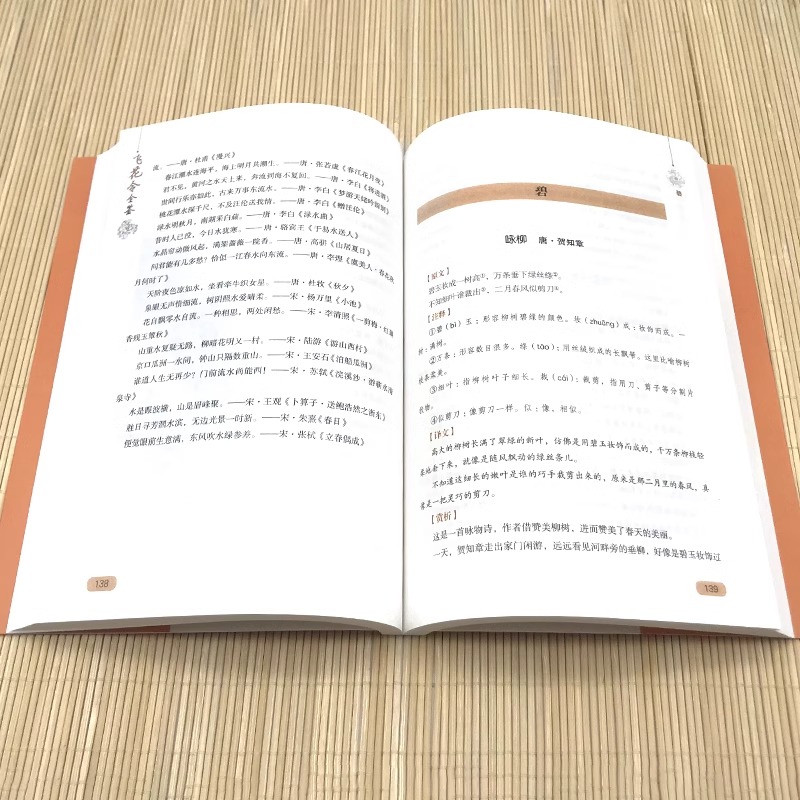 飞花令全鉴
流。——唐·杜甫《漫兴》
春江潮水连海平，海上明月共潮生。——唐·张若虚《春江花月夜》
君不见，黄河之水天上来，奔流到海不复回。——唐·李白《将进酒》
世间行乐亦如此，古来万事东流水。——唐·李白《梦游天姥吟留别》
桃花潭水深千尺，不及汪伦送我情。——唐·李白《赠汪伦》
渌水明秋月，南湖采白蘋。——唐·李白《渌水曲》
昔时人已没，今日水犹寒。——唐·骆宾王《于易水送人》
水晶帘动微风起，满架蔷薇一院香。——唐·高骈《山居夏日》
问君能有几多愁？恰似一江春水向东流。——唐·李煜《虞美人·春花秋
月何时了》
天阶夜色凉如水，坐看牵牛织女星。——唐·杜牧《秋夕》
泉眼无声惜细流，树阴照水爱晴柔。——宋·杨万里《小池》
花自飘零水自流。一种相思，两处闲愁。——宋·李清照《一剪梅·红藕
香残玉簟秋》
山重水复疑无路，柳暗花明又一村。——宋·陆游《游山西村》
京口瓜洲一水间，钟山只隔数重山。——宋·王安石《泊船瓜洲》
谁道人生无再少？门前流水尚能西！——宋·苏轼《浣溪沙·游蕲水清
泉寺》
水是眼波横，山是眉峰聚。——宋·王观《卜算子·送鲍浩然之浙东》
胜日寻芳泗水滨，无边光景一时新。——宋·朱熹《春日》
便觉眼前生意满，东风吹水绿参差。——宋·张栻《立春偶成》
138
碧
碧
咏柳 唐·贺知章
【原文】
碧玉妆成一树高①，万条垂下绿丝绦②。
不知细叶谁裁出③，二月春风似剪刀④。
【注释】
①碧（bì）玉：形容柳树碧绿的颜色。妆（zhuāng）成：妆饰而成。一
树：满树。
②万条：形容数目很多。绦（tāo）：用丝绒织成的长飘带。这里比喻柳树
枝条柔美。
③细叶：指柳树叶子细长。裁（cái）：裁剪，指用刀、剪子等分割片
状物。
④似剪刀：像剪刀一样。似：像，相似。
【译文】
高大的柳树长满了翠绿的新叶，仿佛是用碧玉妆饰而成的，千万条柳枝轻
柔地垂下来，就像是随风飘动的绿丝条儿。
不知道这细长的嫩叶是谁的巧手裁剪出来的，原来是那二月里的春风，真
像是一把灵巧的剪刀。
【赏析】
这是一首咏物诗，作者借赞美柳树，进而赞美了春天的美丽。
一天，贺知章走出家门闲游，远远看见河畔旁的垂柳，好像是碧玉妆饰过
139